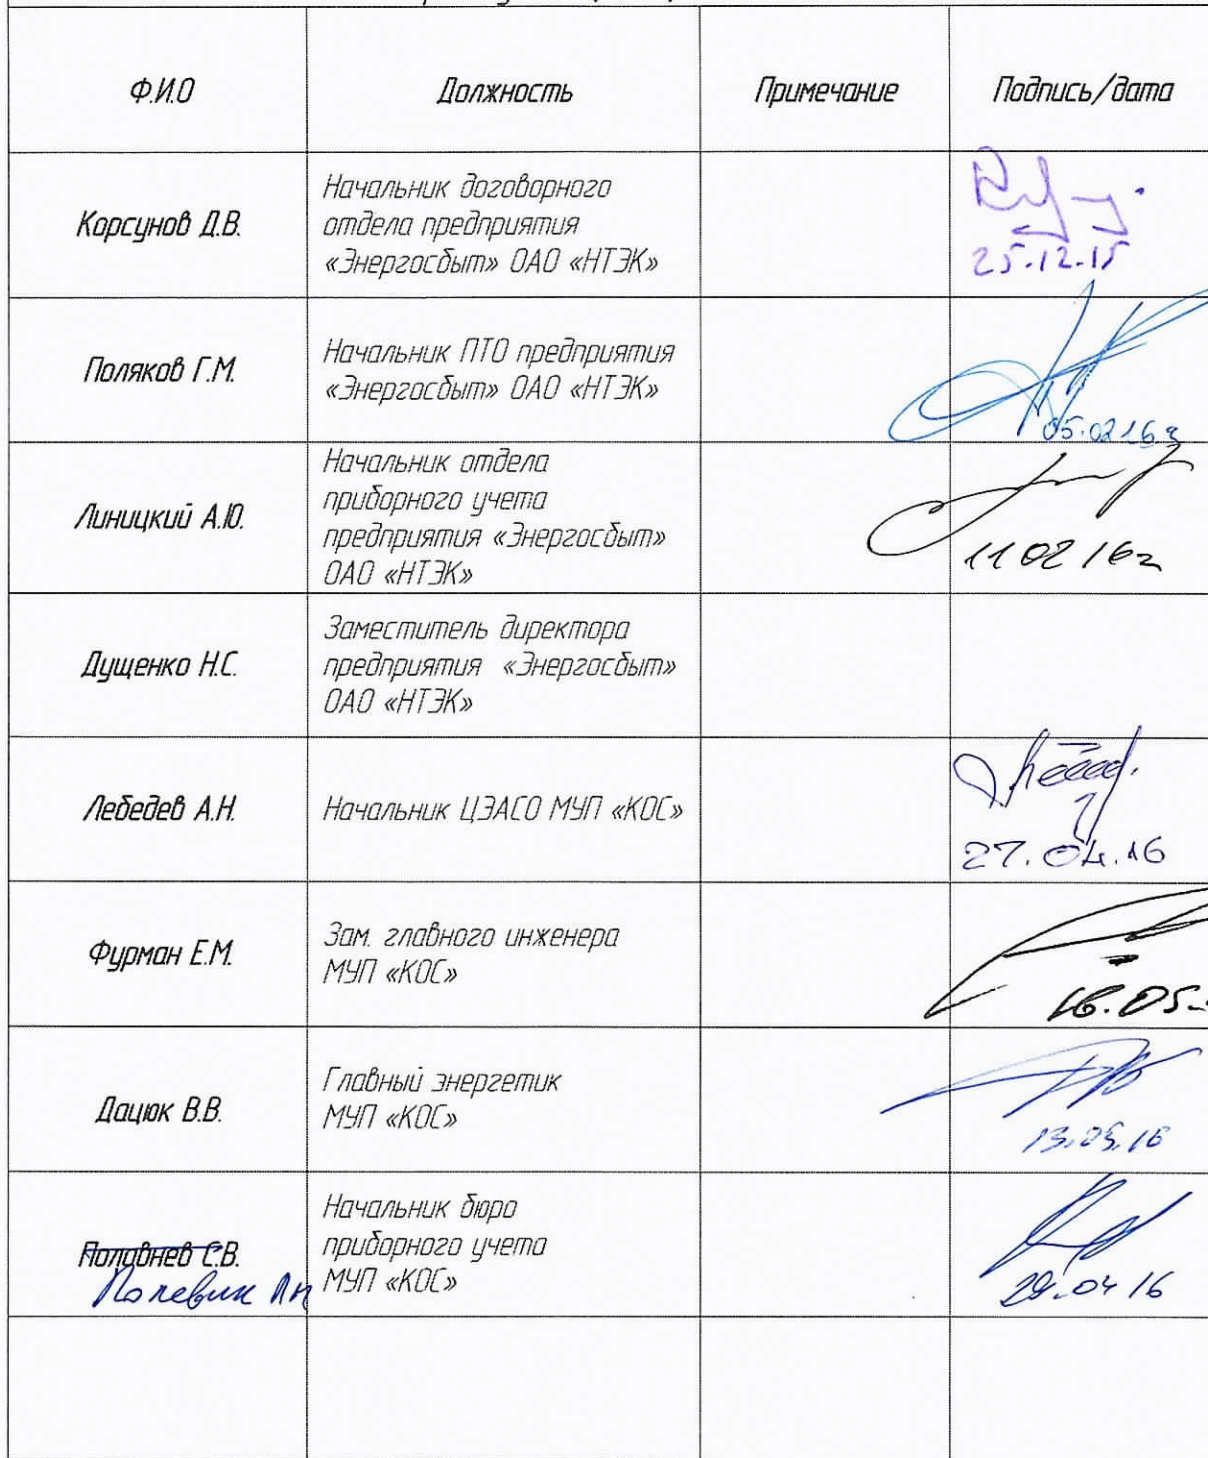 Ф.И.О Должность Примечание Подпись/дата
Корсунов Д.В.
Начальник договорного
отдела предприятия
«Энергосбыт» ОАО «НТЭК»
25.12.15
Поляков Г.М.
Начальник ПТО предприятия
«Энергосбыт» ОАО «НТЭК»
05.02.16г
Линицкий А.Ю.
Начальник отдела
приборного учета
предприятия «Энергосбыт»
ОАО «НТЭК»
11 02 16г
Дущенко Н.С.
Заместитель директора
предприятия «Энергосбыт»
ОАО «НТЭК»
Лебедев А.Н.
Начальник ЦЭАСО МУП «КОС»
27.04.16
Фурман Е.М.
Зам. главного инженера
МУП «КОС»
16.05.
Дацюк В.В.
Главный энергетик
МУП «КОС»
13.05.16
Половнев С.В.
Полевик
Начальник бюро
приборного учета
МУП «КОС»
29.04 16